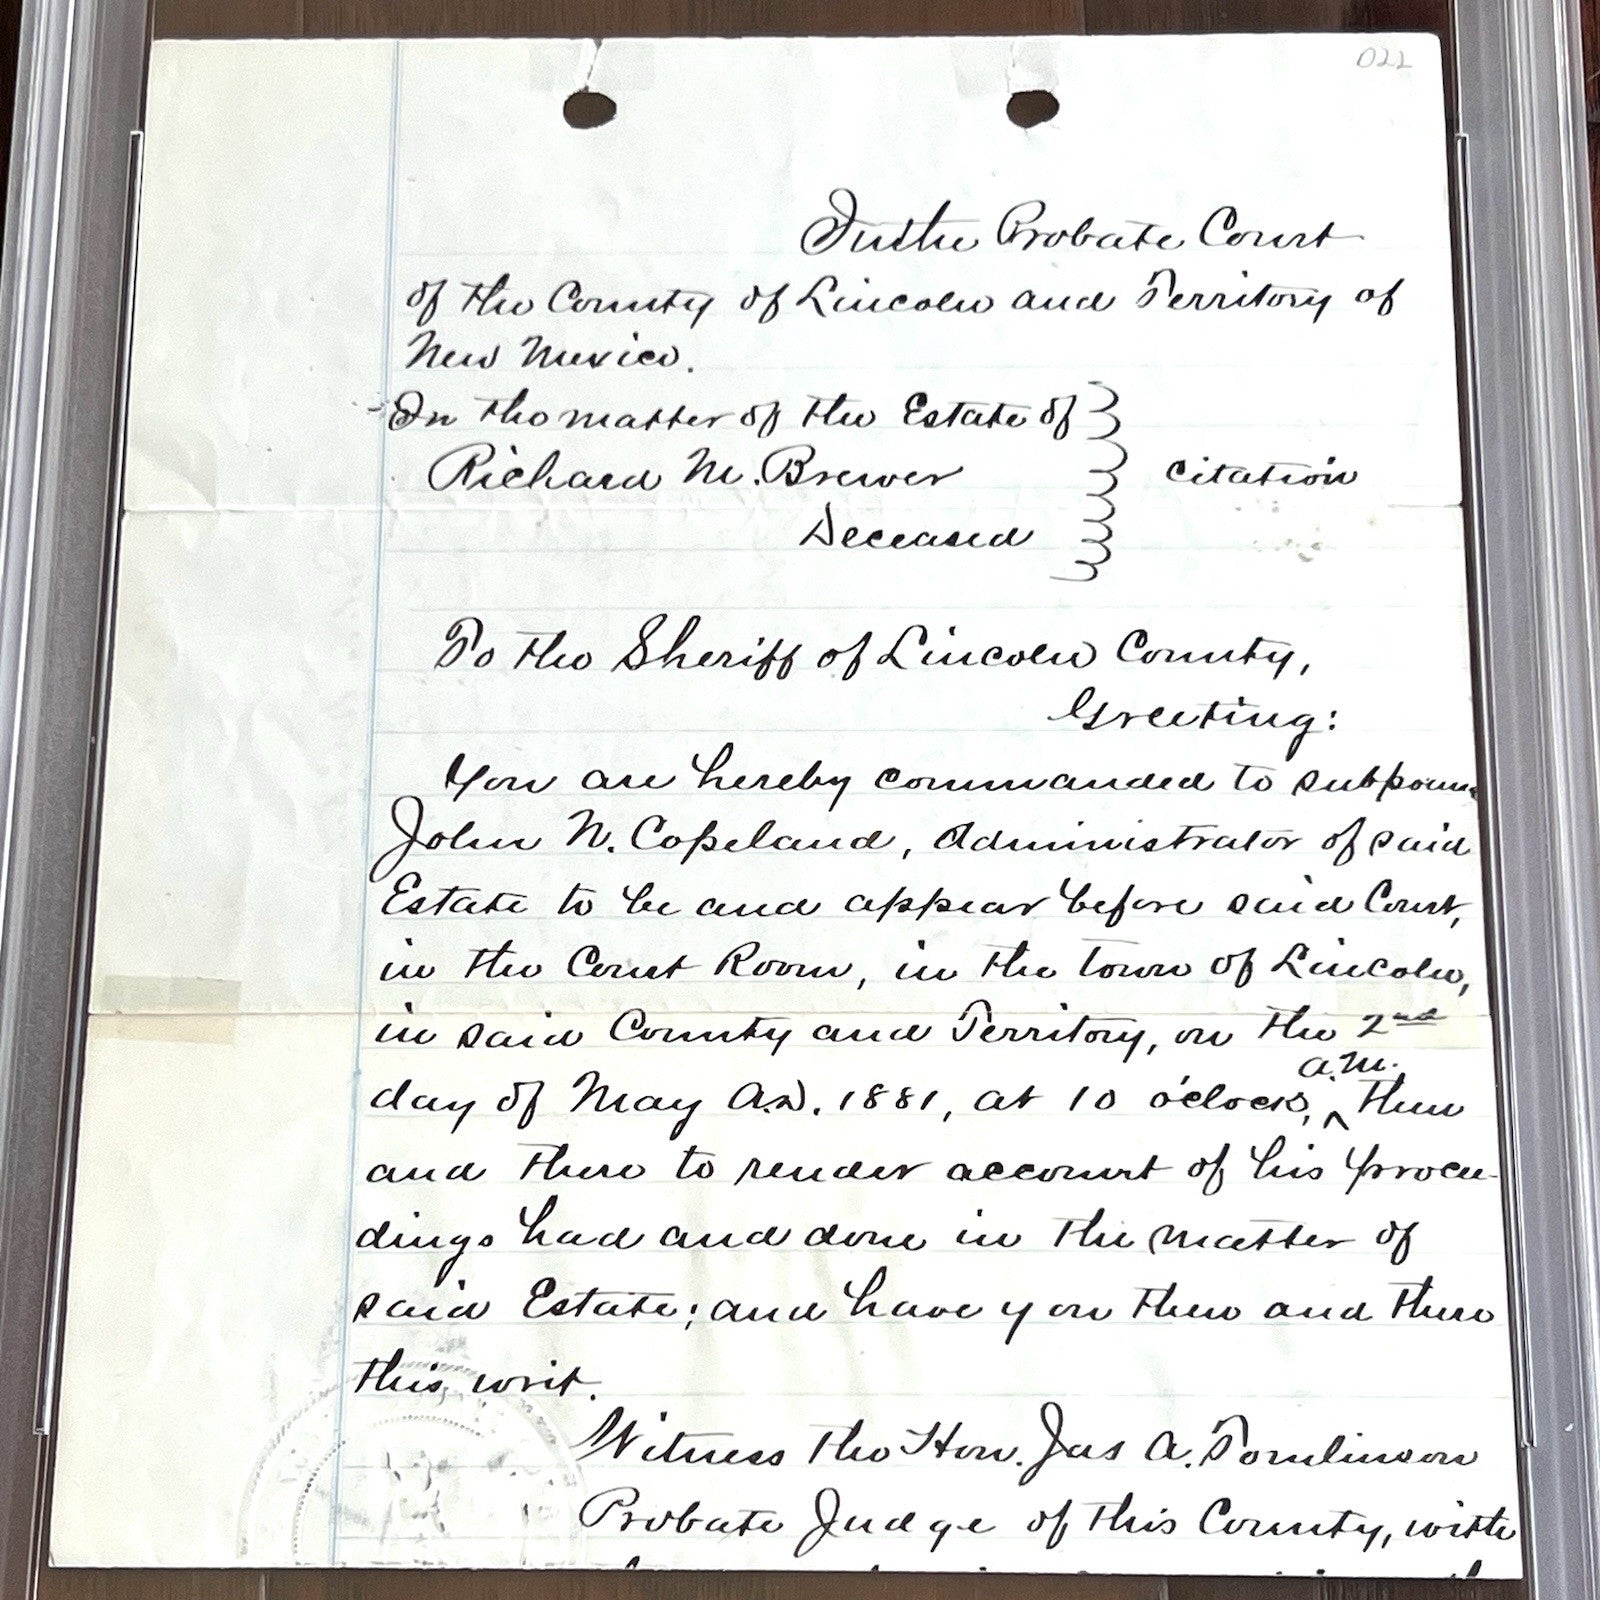 022
In the Probate Court
of the County of Lincoln and Territory of
New Mexico.
In the matter of the Estate of
Richard M. Brewer
Deceased
citation
To the Sheriff of Lincoln County,
Greeting:
You are hereby commanded to subpoena
John N. Copeland, Administrator of said
Estate to be and appear before said Court,
in the Court Room, in the town of Lincoln,
in said County and Territory, on the 2nd
a.m.
day of May A.D. 1881, at 10 o'clock, ^ then
and there to render account of his procee-
dings had and done in the matter of
said Estate; and have you then and there
this writ.
Witness the Hon. Jas A. Tomlinson
Probate Judge of this County, with